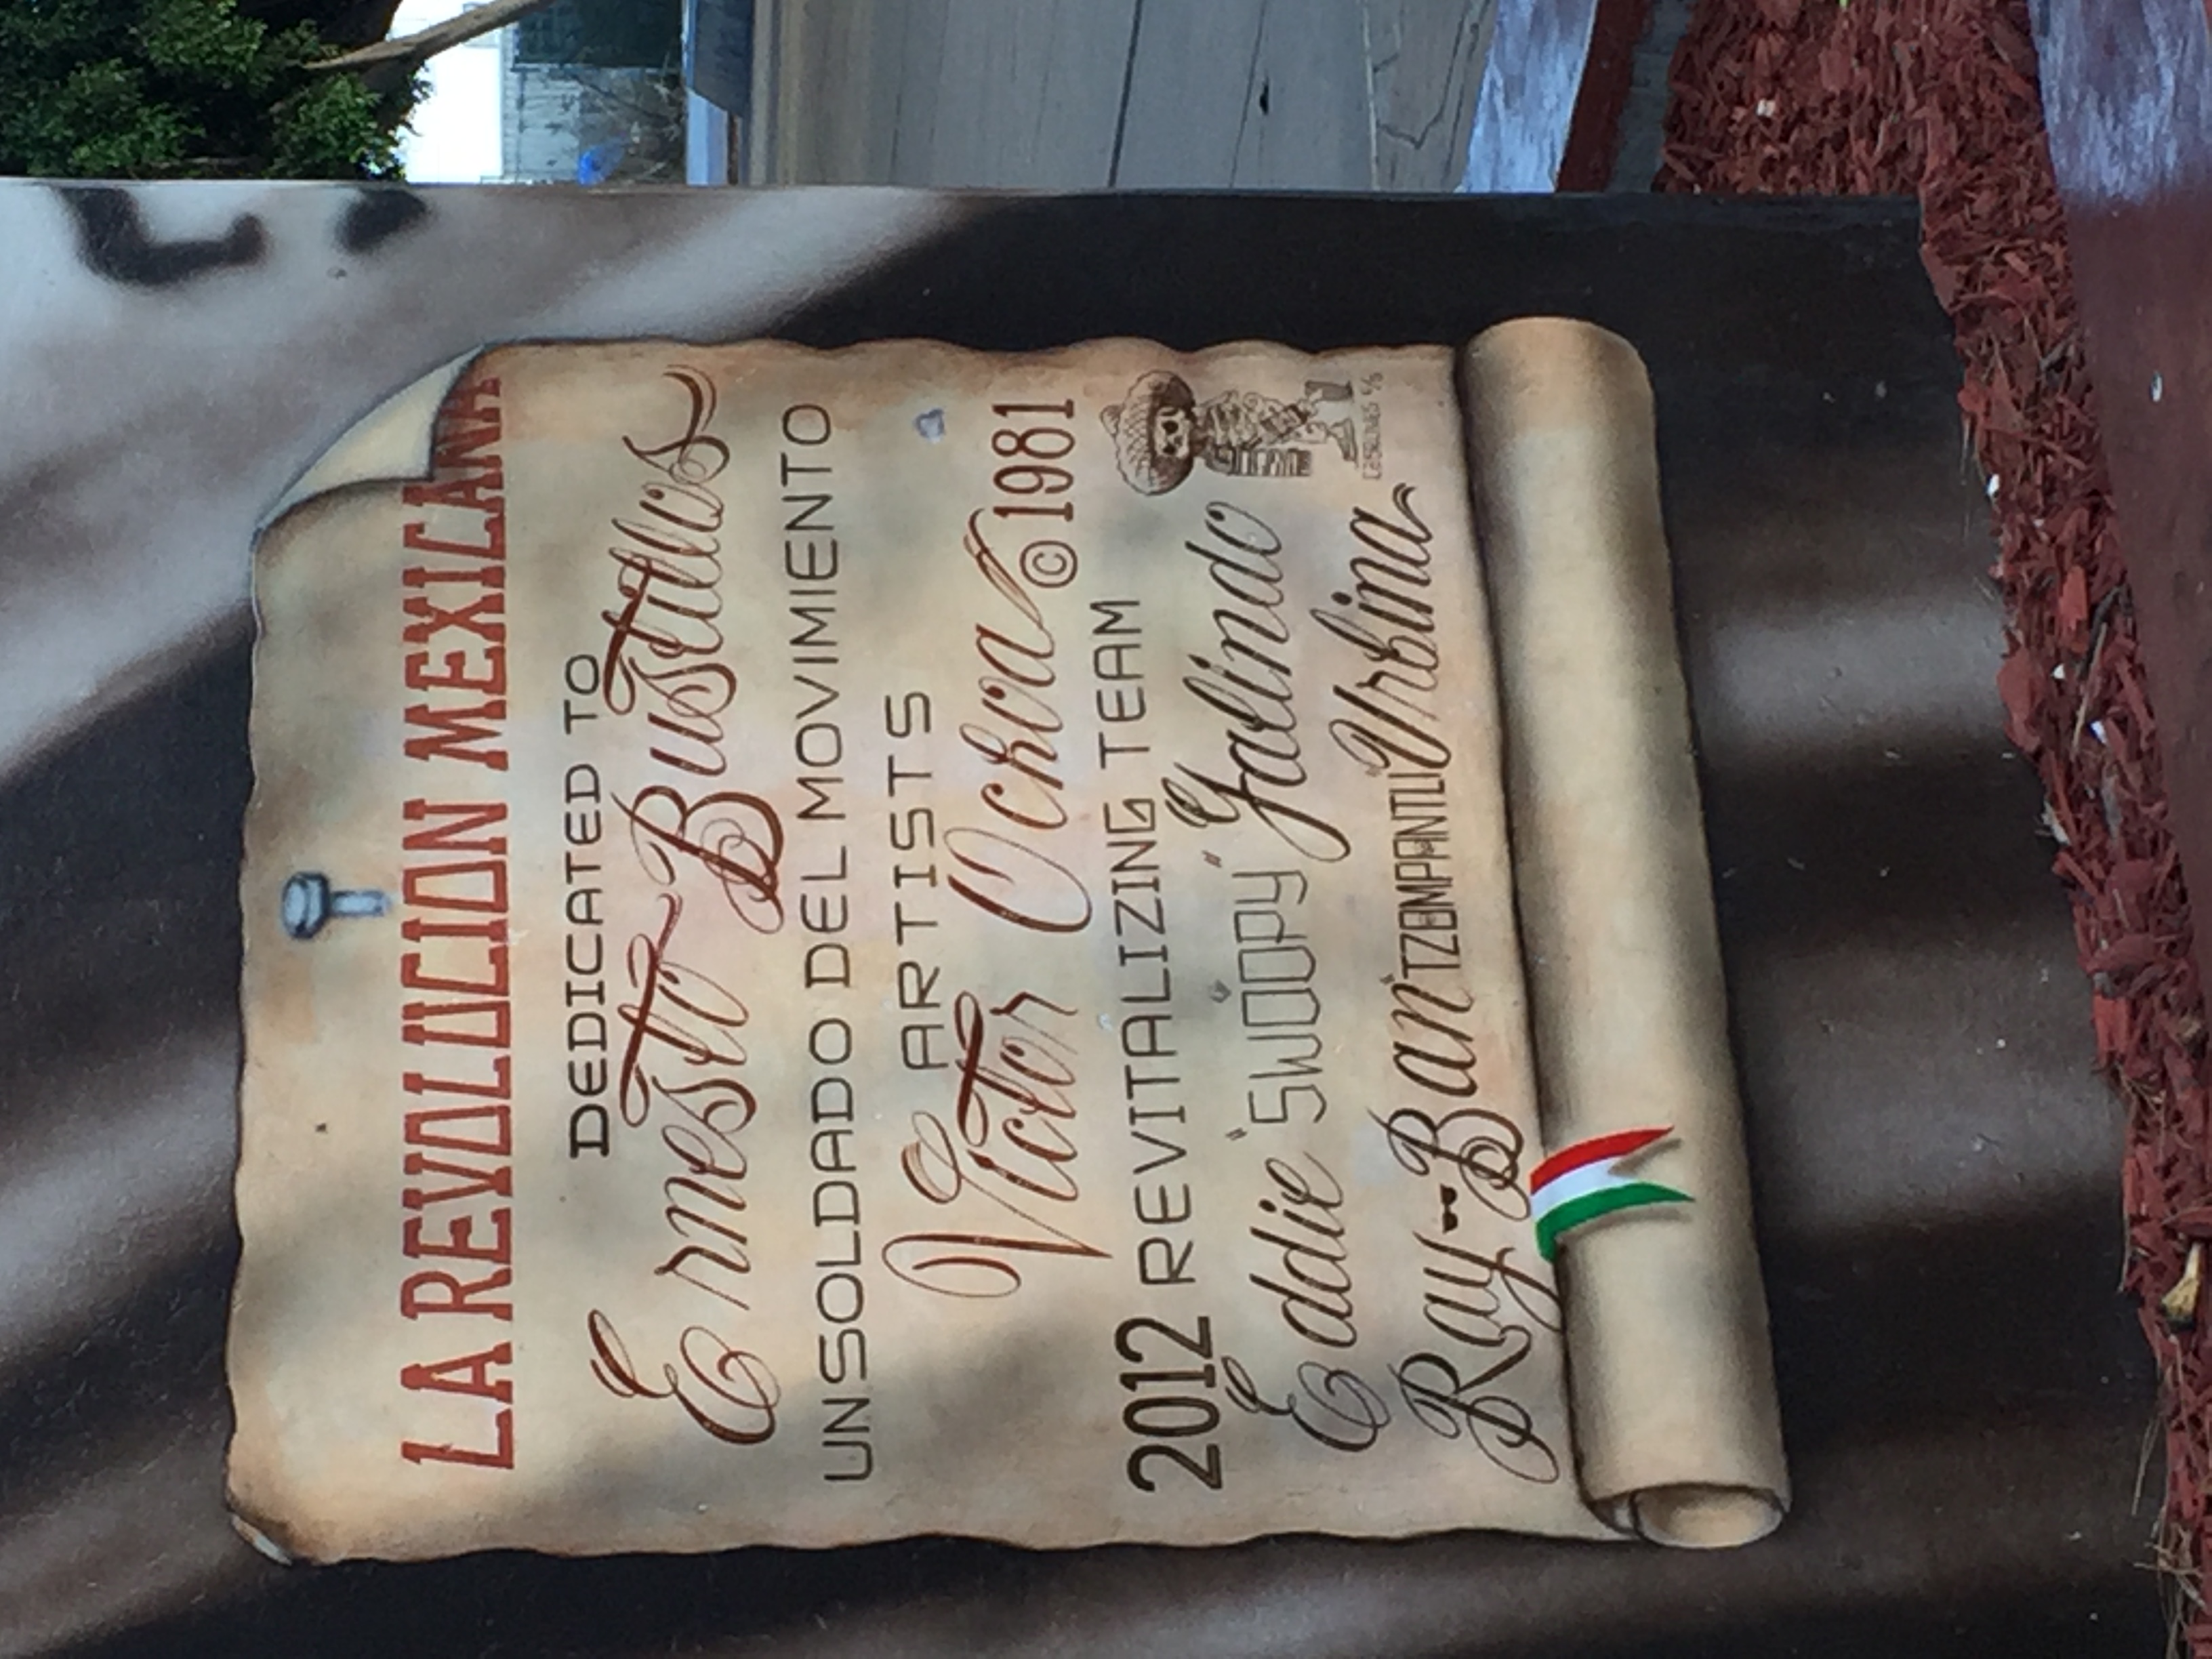 LA REVOLUCION MEXICANA
DEDICATED TO
Ernesto Bustillos
UN SOLDADO DEL MOVIMIENTO
ARTISTS
Victor Ochoa © 1981
2012 REVITALIZING TEAM
Eddie "SWOOPY" Galindo
Ray-Ban "TZOMPANTLI" Urbina